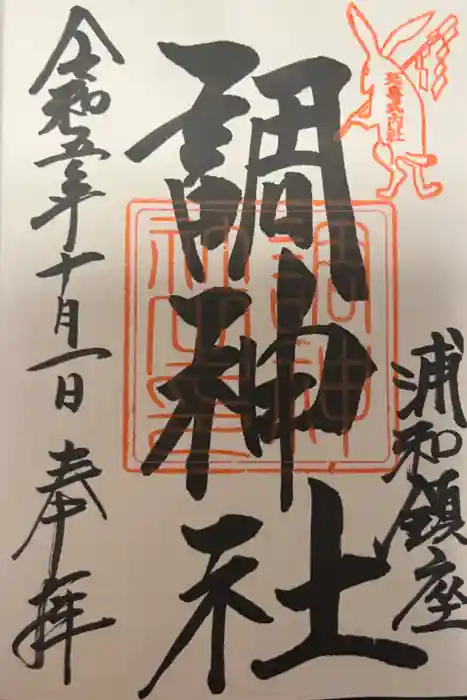 延喜式内社
浦和鎮座
調神社
調神社
令和五年十月一日
奉拝